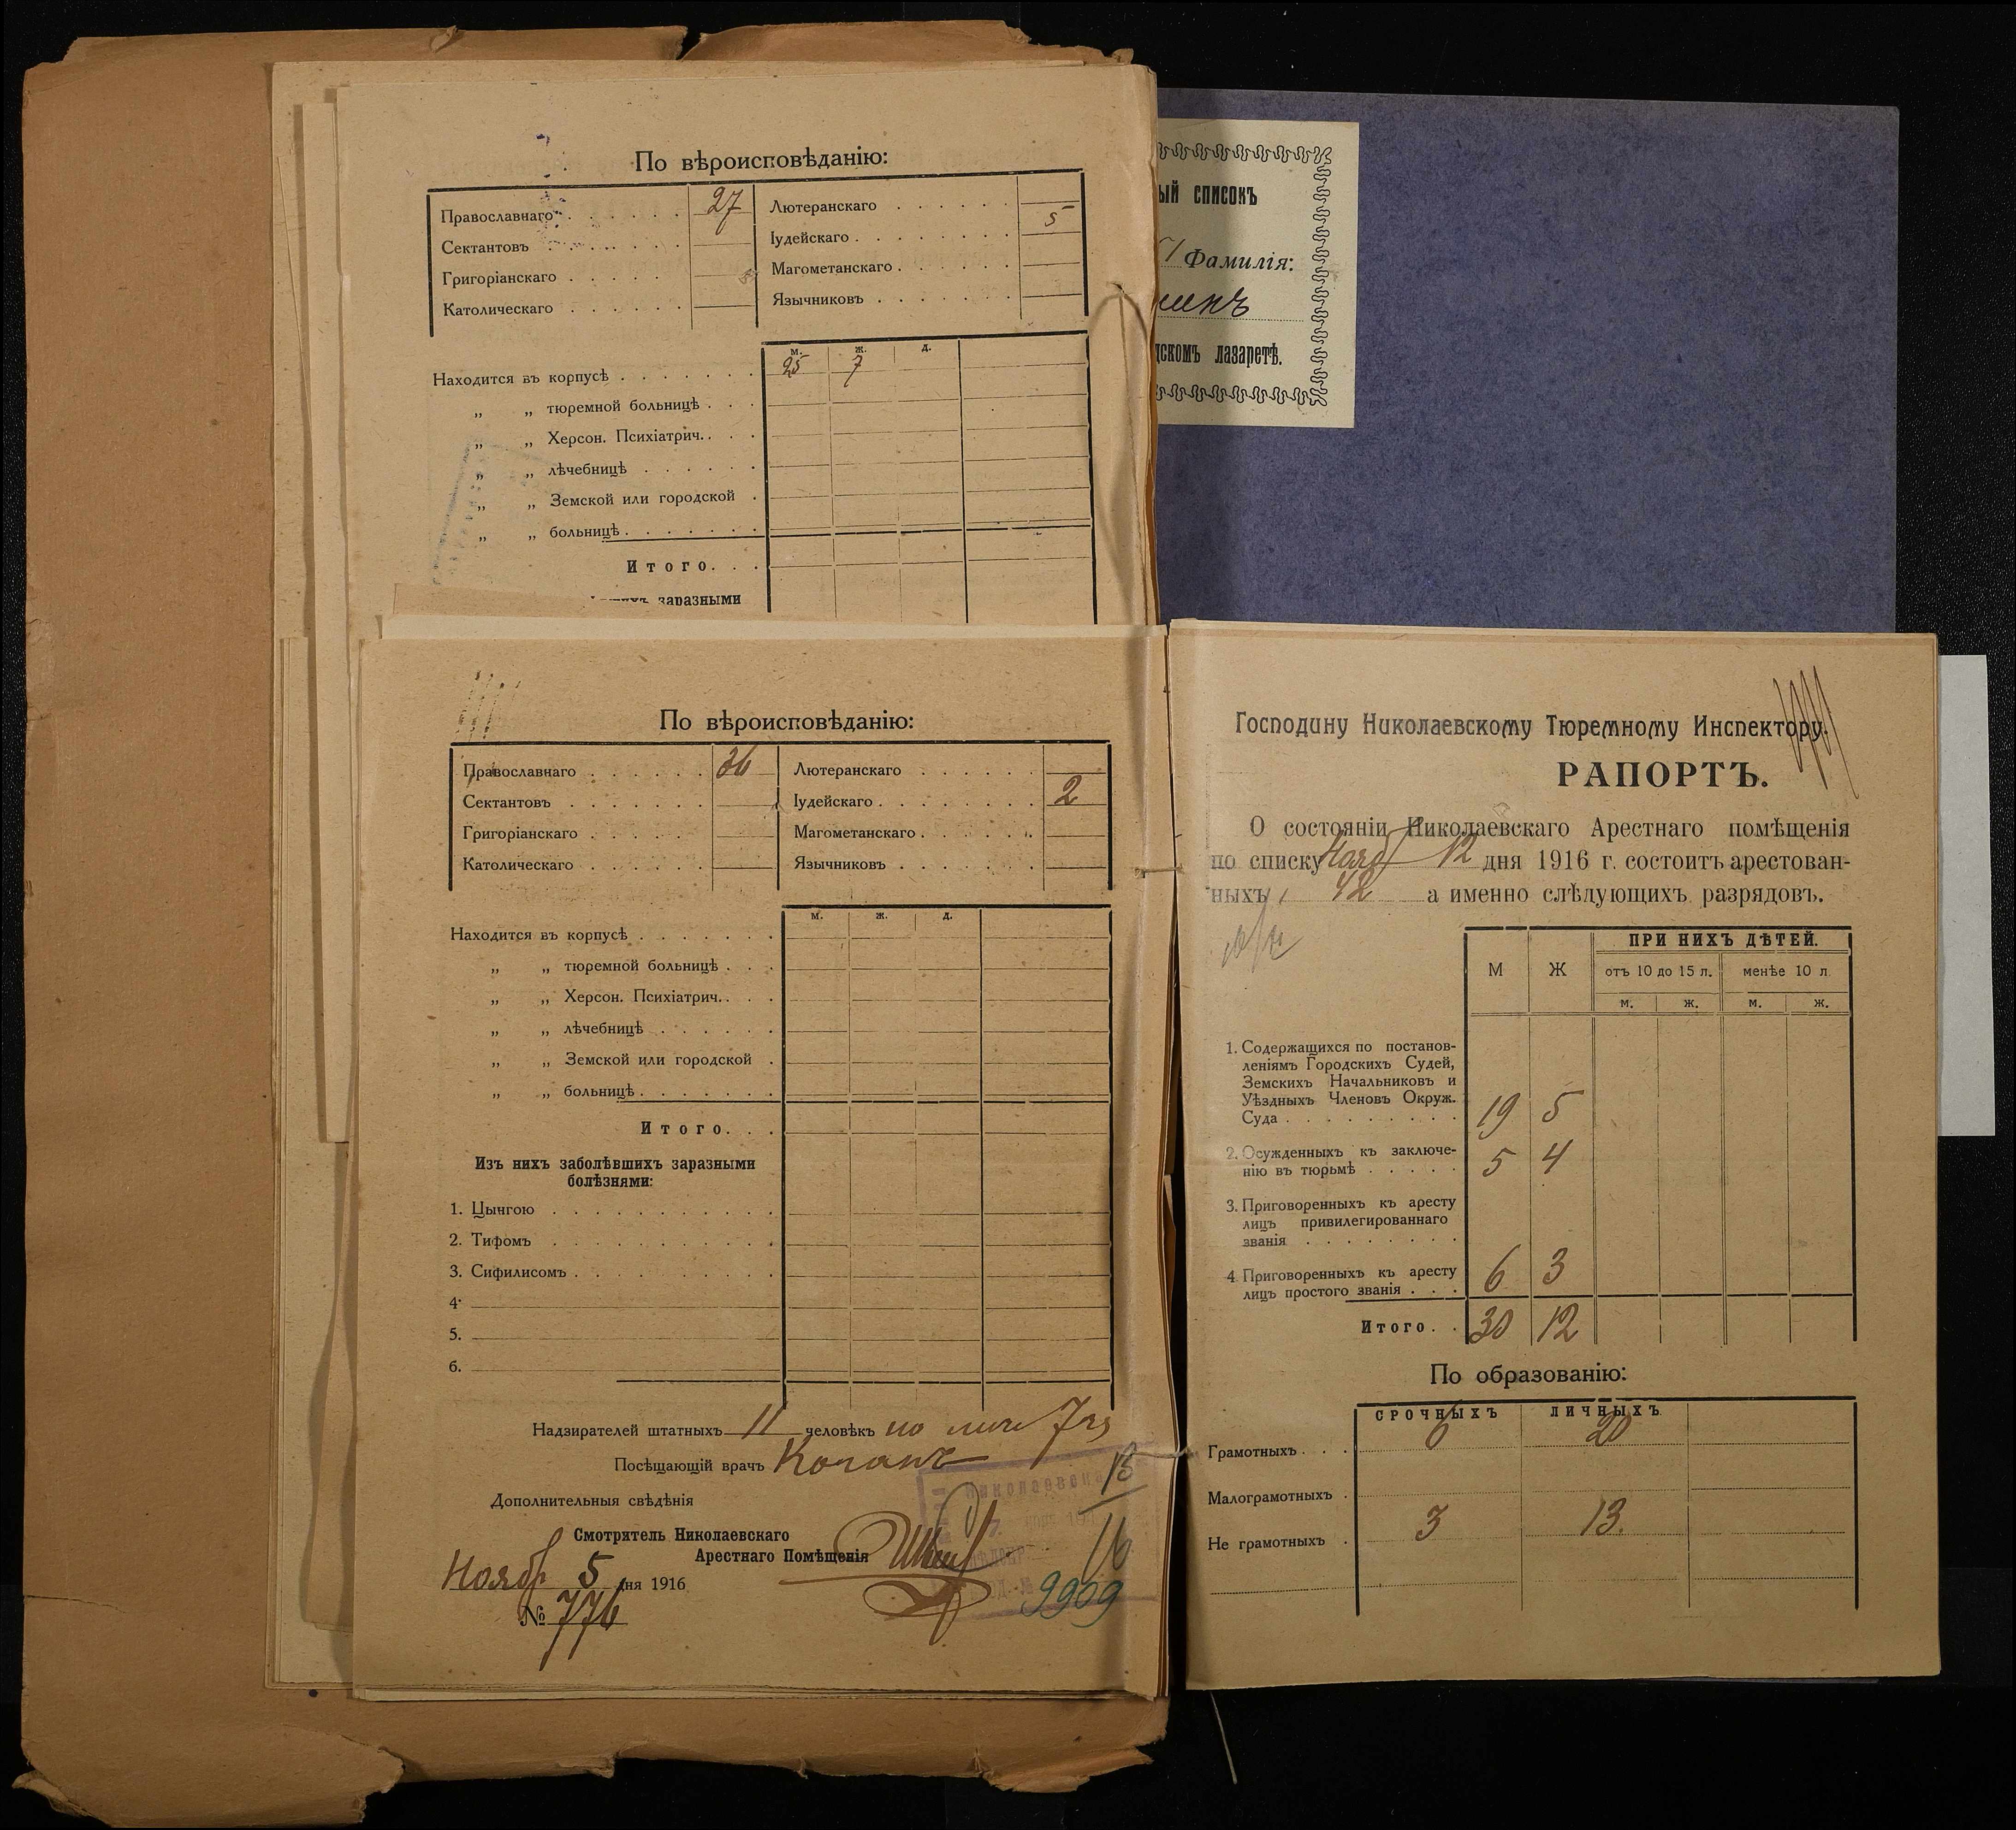 По вѣроисповѣданію:
Православнаго . . . . . . 27
Сектантовъ . . . . . . .
Григоріанскаго . . . . .
Католическаго . . . . . .
Лютеранскаго . . . . . .
Іудейскаго . . . . . . . . 5
Магометанскаго . . . . . .
Язычниковъ . . . . . . .
м. ж. д.
Находится въ корпусѣ . . . . . . . 25 7
„ „ тюремной больницѣ . . .
„ „ Херсон. Психіатрич. . . .
„ „ лѣчебницѣ . . . . . .
„ „ Земской или городской .
„ „ больницѣ . . . . . . .
Итого. . .
заразными
ый списокъ
Фамилія:
дскомъ лазаретѣ.
По вѣроисповѣданію:
Православнаго . . . . . . 36
Сектантовъ . . . . . . .
Григоріанскаго . . . . .
Католическаго . . . . . .
Лютеранскаго . . . . . .
Іудейскаго . . . . . . . . 2
Магометанскаго . . . . . .
Язычниковъ . . . . . . .
м. ж. д.
Находится въ корпусѣ . . . . . . .
„ „ тюремной больницѣ . . .
„ „ Херсон. Психіатрич. . . .
„ „ лѣчебницѣ . . . . . .
„ „ Земской или городской .
„ „ больницѣ . . . . . . .
Итого. . .
Изъ нихъ заболѣвшихъ заразными
болѣзнями:
1. Цынгою . . . . . . . . . . .
2. Тифомъ . . . . . . . . . . .
3. Сифилисомъ . . . . . . . . . .
4.
5.
6.
Надзирателей штатныхъ 11 человѣкъ
Посѣщающій врачъ
Дополнительныя свѣдѣнія
Смотритель Николаевскаго
Арестнаго Помѣщенія
Ноябр 5 дня 1916
№ 776
9909
Господину Николаевскому Тюремному Инспектору.
РАПОРТЪ.
О состояніи Николаевскаго Арестнаго помѣщенія
по списку Нояб 12 дня 1916 г. состоитъ арестован-
ныхъ 42 а именно слѣдующихъ разрядовъ.
М Ж ПРИ НИХЪ ДѢТЕЙ.
отъ 10 до 15 л. менѣе 10 л.
м. ж. м. ж.
1. Содержащихся по постанов-
леніямъ Городскихъ Судей,
Земскихъ Начальниковъ и
Уѣздныхъ Членовъ Окруж.
Суда . . . . . . . . . 19 5
2. Осужденныхъ къ заключе-
нію въ тюрьмѣ . . . . . 5 4
3. Приговоренныхъ къ аресту
лицъ привилегированнаго
званія . . . . . . . .
4 Приговоренныхъ къ аресту
лицъ простого званія . . . 6 3
Итого. . 30 12
По образованію:
СРОЧНЫХЪ ЛИЧНЫХЪ
Грамотныхъ . . . 6 20
Малограмотныхъ .
Не грамотныхъ . 3 13.